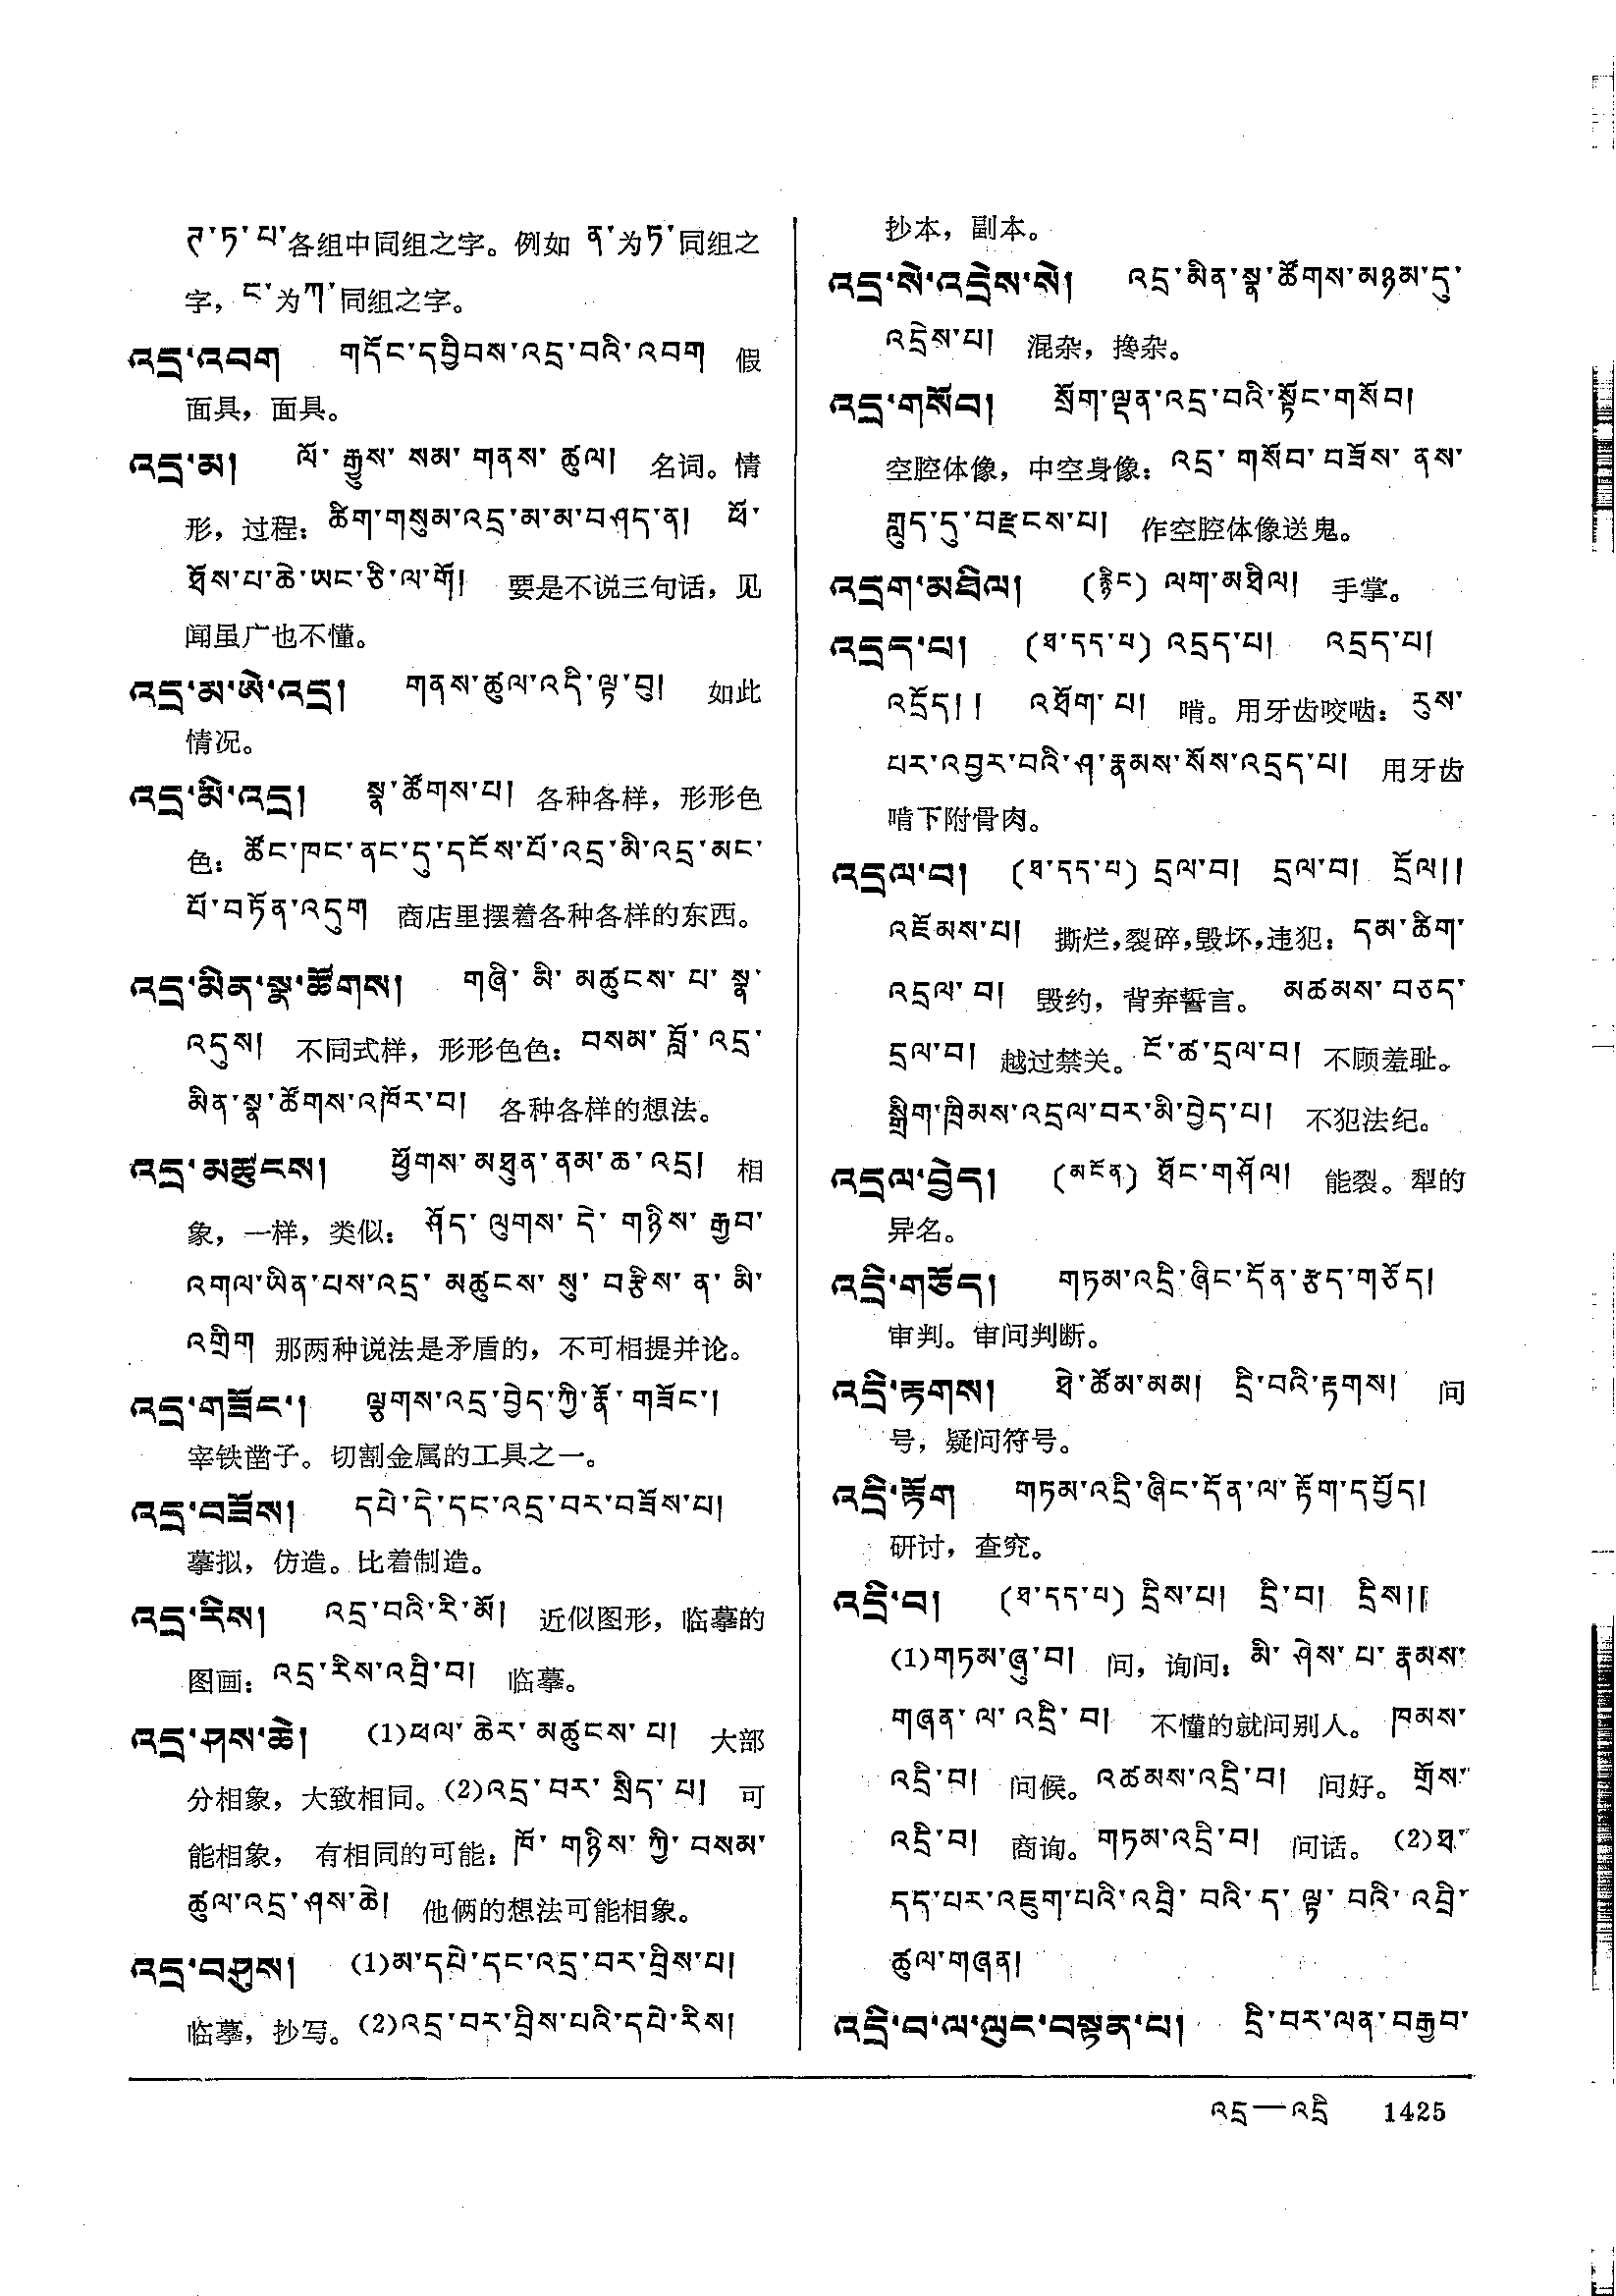 ཊ་ཏ་པ་各组中同组之字。例如 ན་为ཏ་同组之
字，ང་为ཀ་同组之字。
འདྲ་འབག གདོང་དབྱིབས་འདྲ་བའི་འབག 假
面具，面具。
འདྲ་མ། ལོ་རྒྱུས་ སམ་ གནས་ ཚུལ། 名词。情
形，过程：ཚིག་གསུམ་འདྲ་མ་མ་བཤད་ན། ཕོ་
ཐོས་པ་ཆེ་ཡང་ཅི་ལ་གོ། 要是不说三句话，见
闻虽广也不懂。
འདྲ་མ་ཨེ་འདྲ། གནས་ཚུལ་འདི་ལྟ་བུ། 如此
情况。
འདྲ་མི་འདྲ། སྣ་ཚོགས་པ། 各种各样，形形色
色：ཚོང་ཁང་ནང་དུ་དངོས་པོ་འདྲ་མི་འདྲ་མང་
པོ་བཏོན་འདུག 商店里摆着各种各样的东西。
འདྲ་མིན་སྣ་ཚོགས། གཞི་ མི་ མཚུངས་ པ་ སྣ་
འདུས། 不同式样，形形色色：བསམ་ བློ་ འདྲ་
མིན་སྣ་ཚོགས་འཁོར་བ། 各种各样的想法。
འདྲ་མཚུངས། ཕྱོགས་མཐུན་ནམ་ཆ་འདྲ། 相
象，一样，类似：ཤོད་ ལུགས་ དེ་ གཉིས་ རྒྱབ་
འགལ་ཡིན་པས་འདྲ་ མཚུངས་ སུ་ བརྩིས་ ན་ མི་
འགྲིག 那两种说法是矛盾的，不可相提并论。
འདྲ་གཟོང་། ལྕགས་འདྲ་བྱེད་ཀྱི་རྣོ་གཟོང་།
宰铁凿子。切割金属的工具之一。
འདྲ་བཟོས། དཔེ་དེ་དང་འདྲ་བར་བཟོས་པ།
摹拟，仿造。比着制造。
འདྲ་རིས། འདྲ་བའི་རི་མོ། 近似图形，临摹的
图画：འདྲ་རིས་འབྲི་བ། 临摹。
འདྲ་ཤས་ཆེ། (1)ཕལ་ ཆེར་ མཚུངས་ པ། 大部
分相象，大致相同。(2)འདྲ་བར་ སྲིད་ པ། 可
能相象， 有相同的可能：ཁོ་ གཉིས་ ཀྱི་ བསམ་
ཚུལ་འདྲ་ཤས་ཆེ། 他俩的想法可能相象。
འདྲ་བཤུས། (1)མ་དཔེ་དང་འདྲ་བར་བྲིས་པ།
临摹，抄写。(2)འདྲ་བར་བྲིས་པའི་དཔེ་རིས།
抄本，副本。
འདྲ་སེ་འདྲེས་སེ། འདྲ་མིན་སྣ་ཚོགས་མཉམ་དུ་
འདྲེས་པ། 混杂，搀杂。
འདྲ་གསོབ། སྲོག་ལྡན་འདྲ་བའི་སྟོང་གསོབ།
空腔体像，中空身像：འདྲ་ གསོབ་ བཟོས་ ནས་
གླུད་དུ་བརྫངས་པ། 作空腔体像送鬼。
འདྲག་མཐིལ། (རྙིང) ལག་མཐིལ། 手掌。
འདྲད་པ། (ཐ་དད་པ) འདྲད་པ། འདྲད་པ།
འདྲོད།། འཐོག་པ། 啃。用牙齿咬啮：རུས་
པར་འབྱར་བའི་ཤ་རྣམས་སོས་འདྲད་པ། 用牙齿
啃下附骨肉。
འདྲལ་བ། (ཐ་དད་པ) དྲལ་བ། དྲལ་བ། དྲོལ།།
འཇོམས་པ། 撕烂，裂碎，毁坏，违犯：དམ་ཚིག་
འདྲལ་བ། 毁约，背弃誓言。 མཚམས་ བཅད་
དྲལ་བ། 越过禁关。ངོ་ཚ་དྲལ་བ། 不顾羞耻。
སྒྲིག་ཁྲིམས་འདྲལ་བར་མི་བྱེད་པ། 不犯法纪。
འདྲལ་བྱེད། (མངོན) ཐོང་གཤོལ། 能裂。犁的
异名。
འདྲི་གཅོད། གཏམ་འདྲི་ཞིང་དོན་རྩད་གཅོད།
审判。审问判断。
འདྲི་རྟགས། ཐེ་ཚོམ་མམ། དྲི་བའི་རྟགས། 问
号，疑问符号。
འདྲི་རྟོག གཏམ་འདྲི་ཞིང་དོན་ལ་རྟོག་དཔྱོད།
研讨，查究。
འདྲི་བ། (ཐ་དད་པ) དྲིས་པ། དྲི་བ། དྲིས།།
(1)གཏམ་ཞུ་བ། 问，询问：མི་ ཤེས་ པ་ རྣམས་
གཞན་ ལ་ འདྲི་ བ། 不懂的就问别人。 ཁམས་
འདྲི་བ། 问候。འཚམས་འདྲི་བ། 问好。 གྲོས་
འདྲི་བ། 商询。གཏམ་འདྲི་བ། 问话。 (2)ཐ་
དད་པར་འཇུག་པའི་འབྲི་ བའི་ ད་ ལྟ་ བའི་ འབྲི་
ཚུལ་གཞན།
འདྲི་བ་ལ་ལུང་བསྟན་པ། དྲི་བར་ལན་བརྒྱབ་
འདྲ—འདྲི 1425